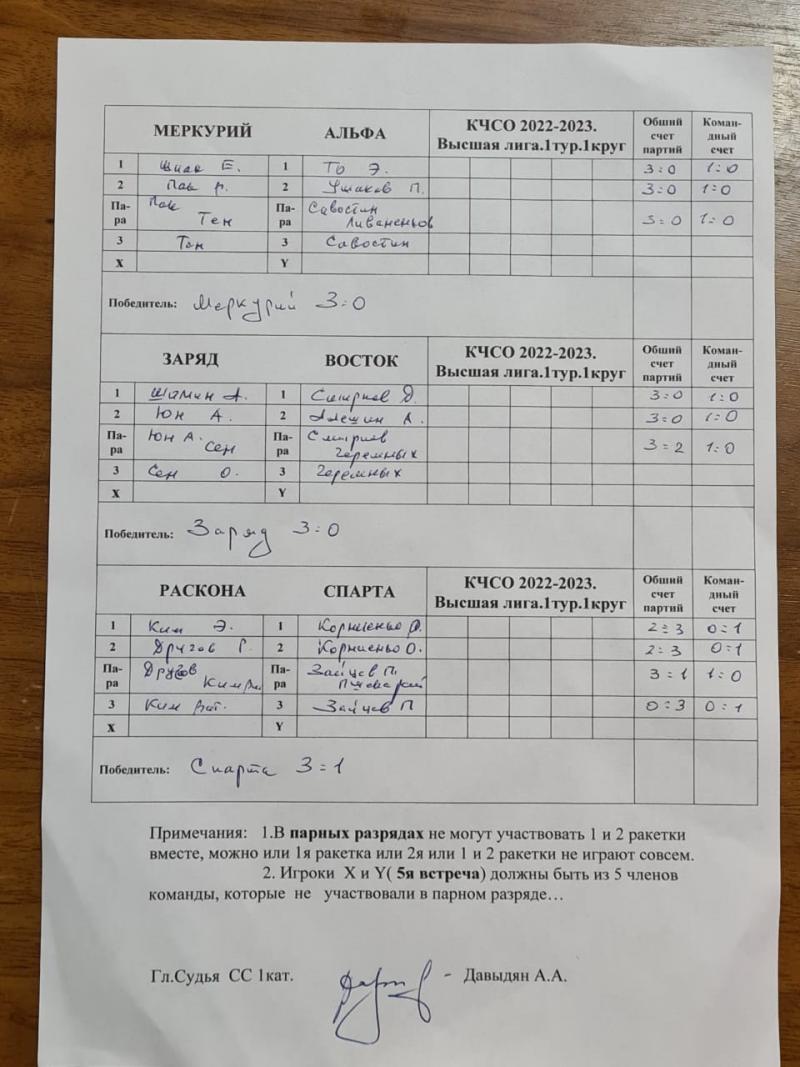 МЕРКУРИЙ АЛЬФА КЧСО 2022-2023. Высшая лига.1тур.1круг Общий счет партий Коман-дный счет
1 Е. 1 То Э. 3:0 1:0
2 Пак р. 2 Ушаков П. 3:0 1:0
Па-ра Пак Тен Па-ра Савостин 3:0 1:0
3 Тен 3 Савостин
X Y
Победитель: Меркурий 3:0
ЗАРЯД ВОСТОК КЧСО 2022-2023. Высшая лига.1тур.1круг Общий счет партий Коман-дный счет
1 Шамин А. 1 Смирнов Д. 3:0 1:0
2 Юн А. 2 Алешин А. 3:0 1:0
Па-ра Юн А. Сен Па-ра Черемных 3:2 1:0
3 Сен О. 3 Черемных
X Y
Победитель: Заряд 3:0
РАСКОНА СПАРТА КЧСО 2022-2023. Высшая лига.1тур.1круг Общий счет партий Коман-дный счет
1 Ким Э. 1 Корниенко 2:3 0:1
2 Другов Г. 2 Корниенко О. 2:3 0:1
Па-ра Другов Па-ра Зайцев П. 3:1 1:0
3 Ким 3 Зайцев П 0:3 0:1
X Y
Победитель: Спарта 3:1
Примечания: 1.В парных разрядах не могут участвовать 1 и 2 ракетки
вместе, можно или 1я ракетка или 2я или 1 и 2 ракетки не играют совсем.
2. Игроки X и Y( 5я встреча) должны быть из 5 членов
команды, которые не участвовали в парном разряде…
Гл.Судья СС 1кат. - Давыдян А.А.